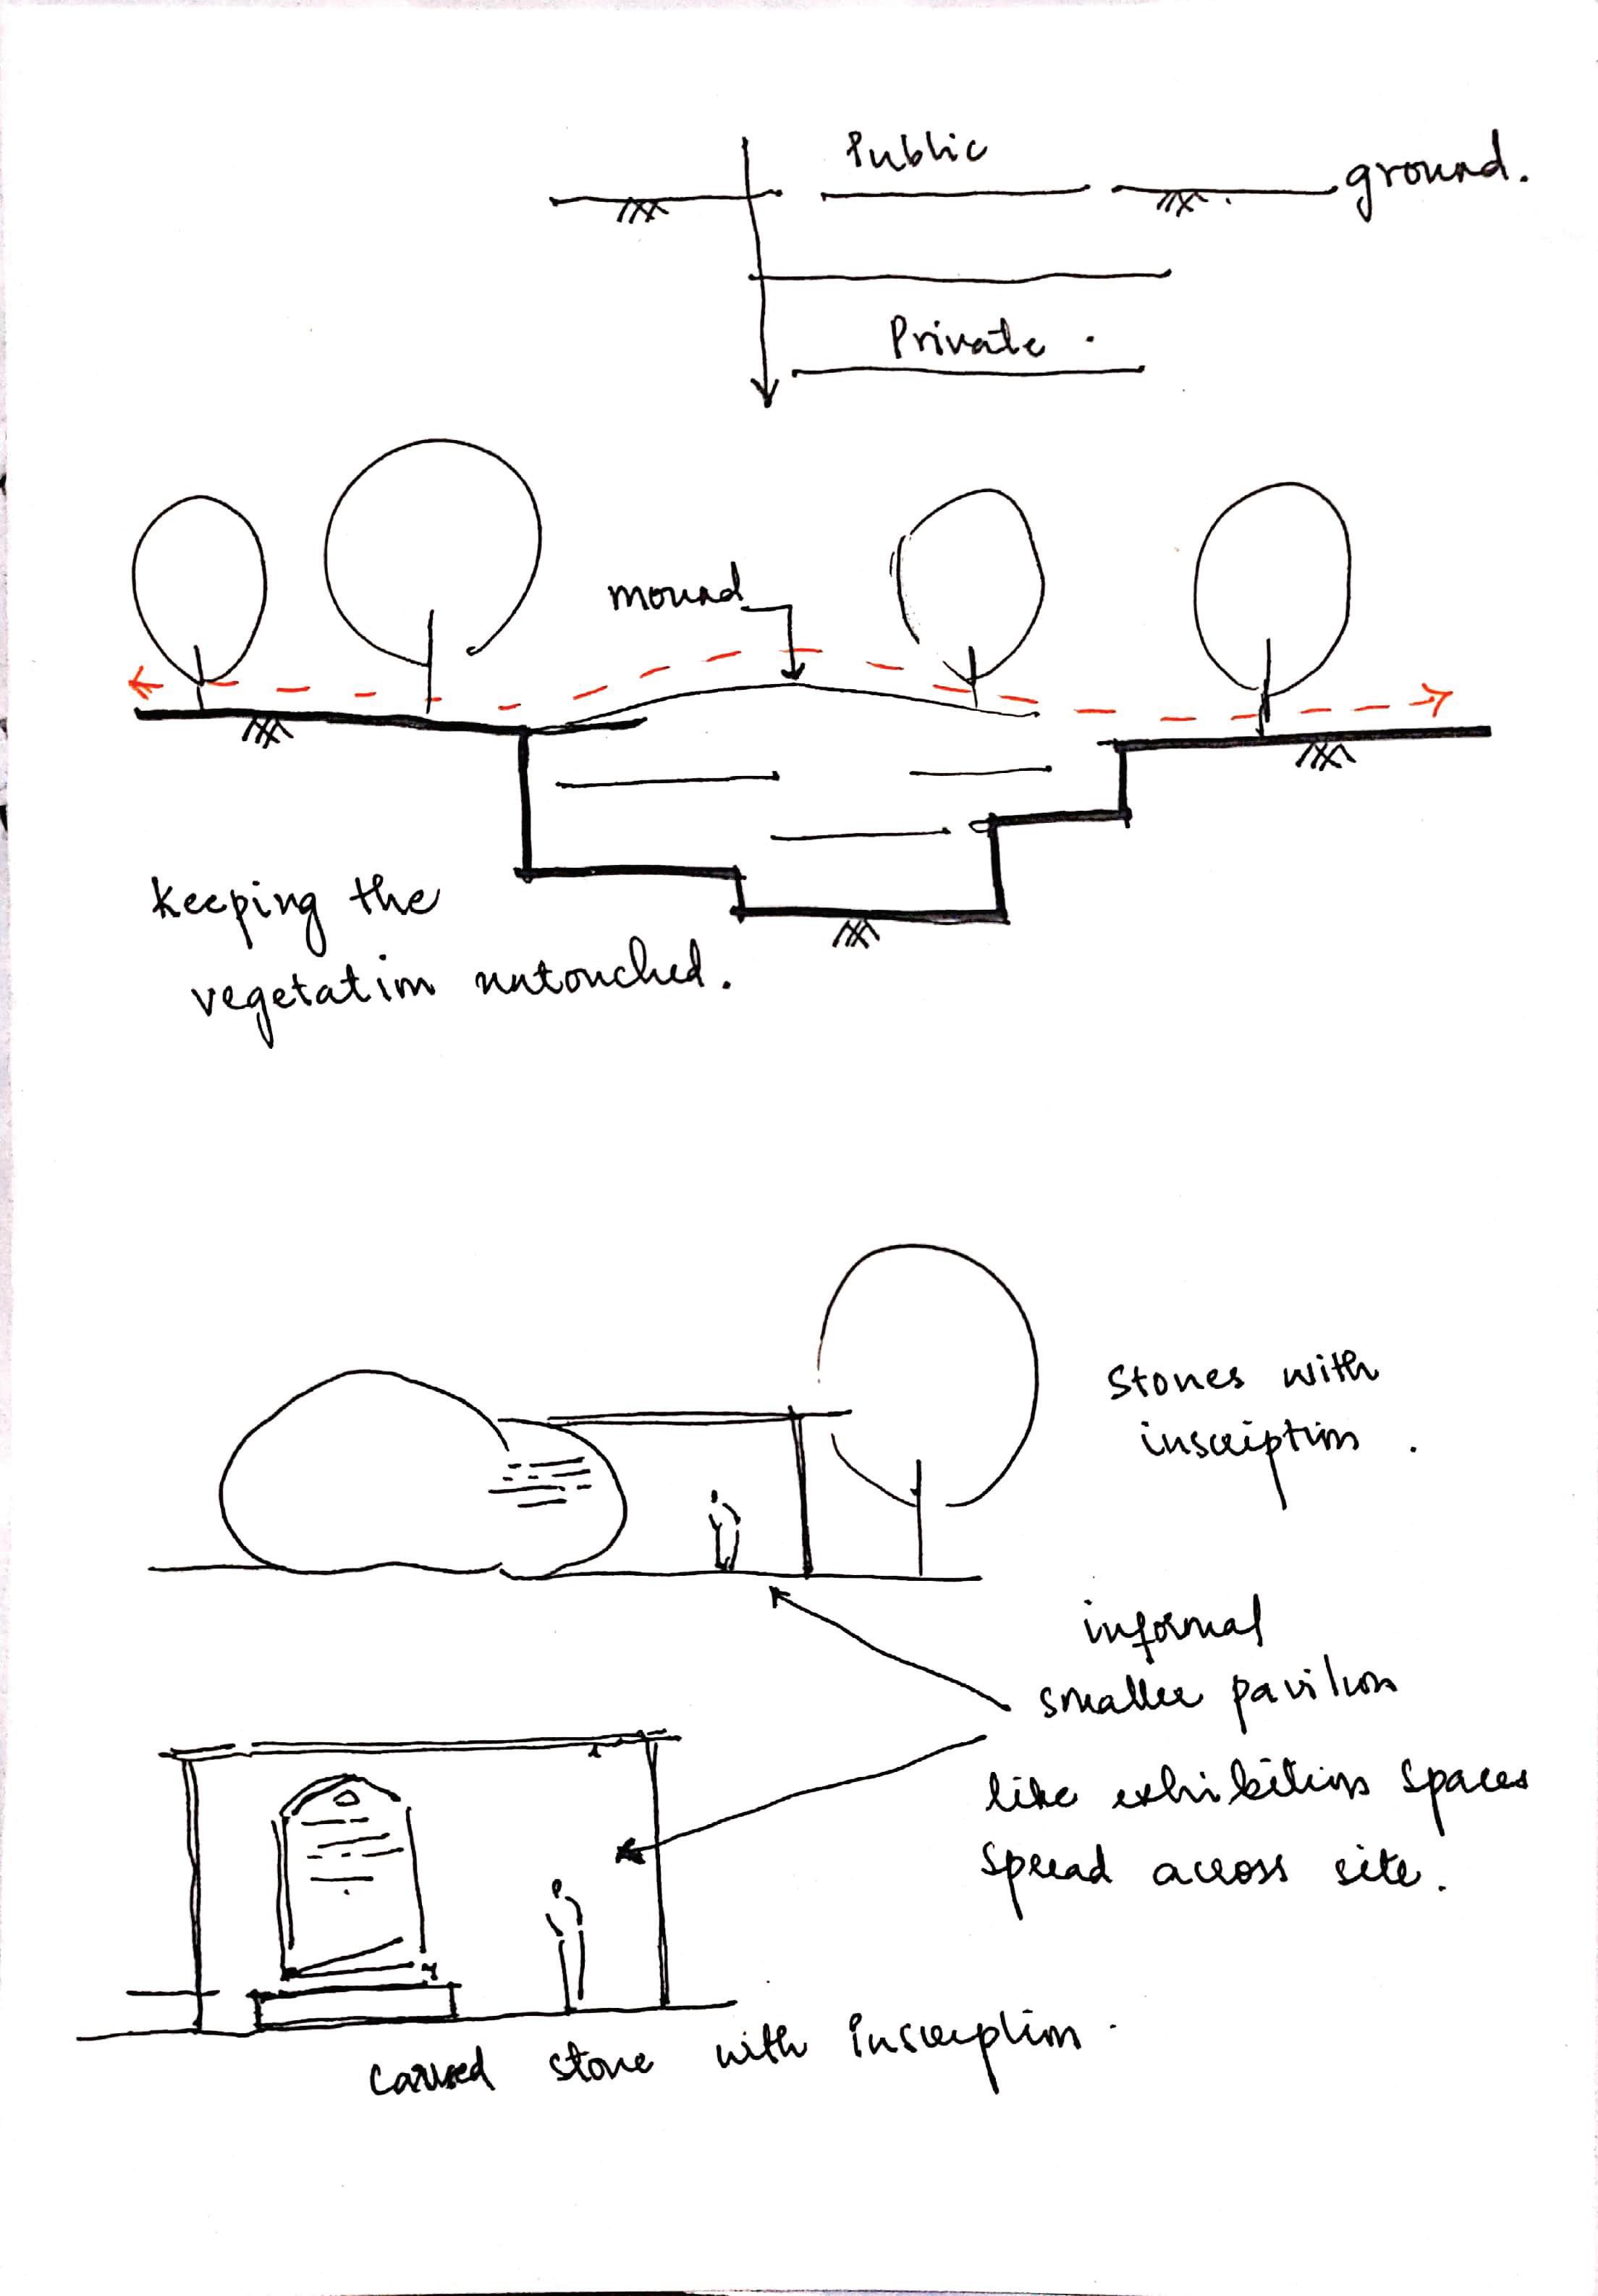 Public
ground.
Private .
mound
keeping the
vegetation untouched.
Stones with
inscription .
informal
smaller pavilion
like exhibition spaces
spread across site.
Carved stone with inscription.